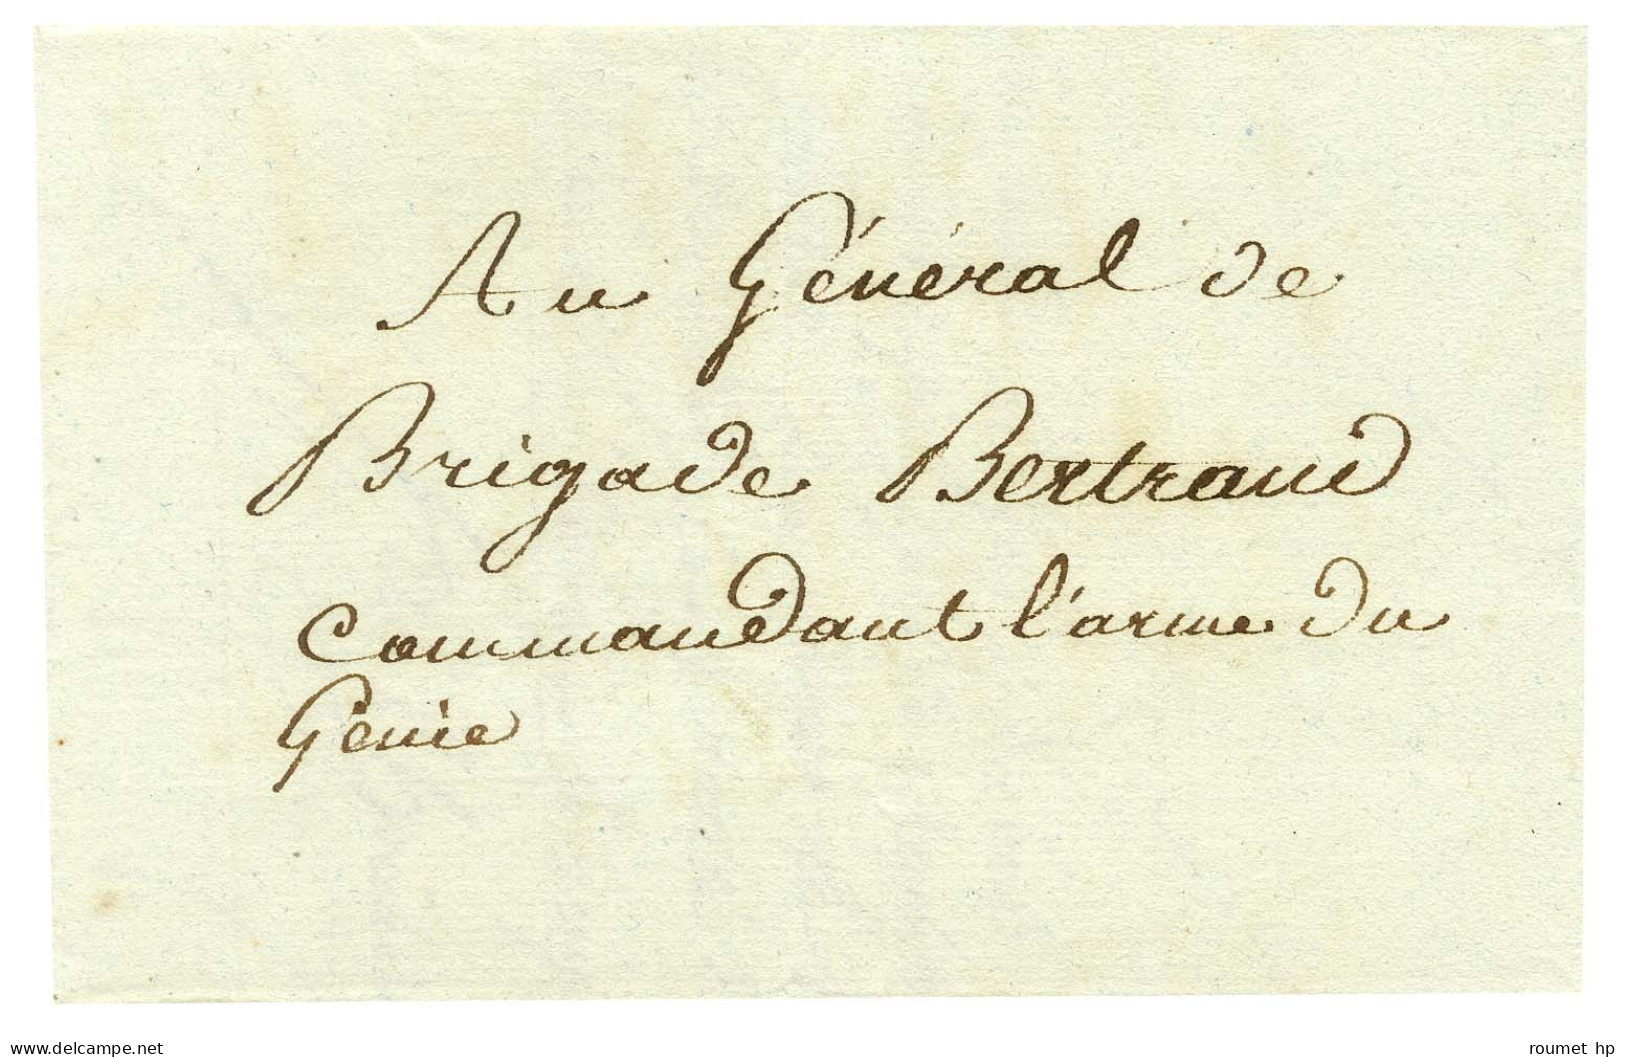 Au Général de
Brigade Bertrand
Commandant l'arme du
Genie
www.delcampe.net
roumet hp